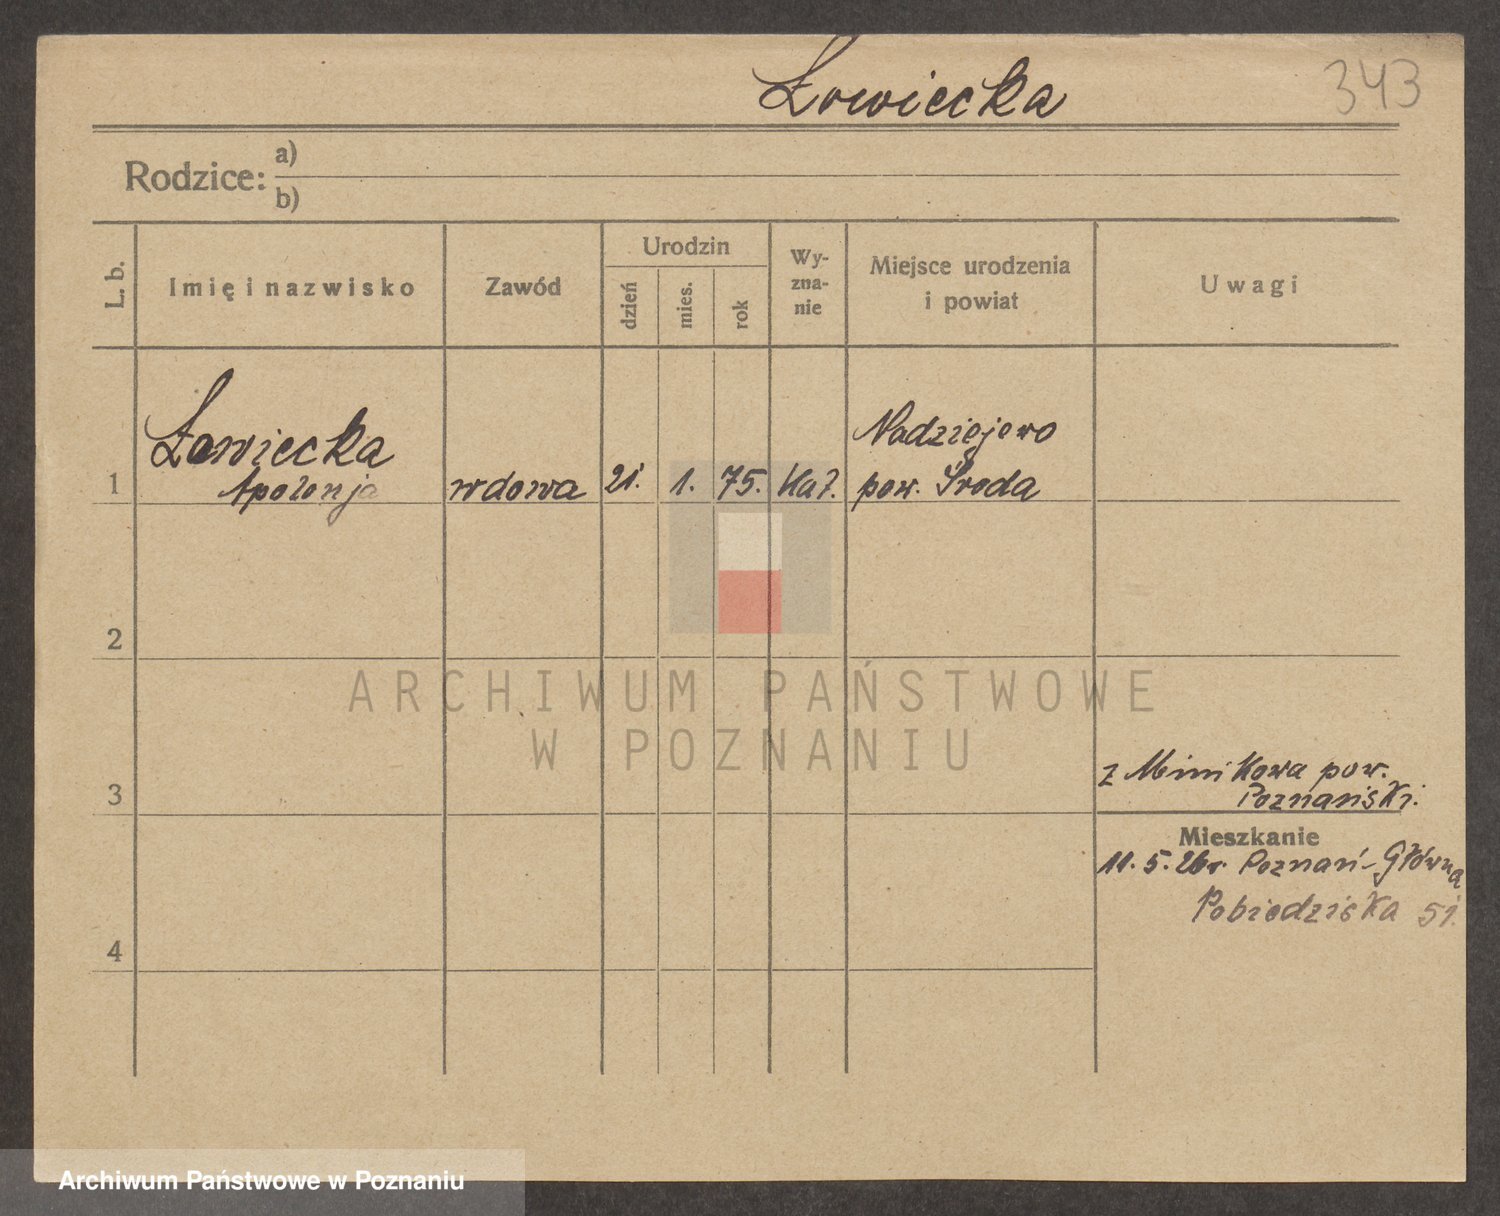 Łowiecka
343
Rodzice:
a)
b)
L. b.
Imię i nazwisko
Zawód
Urodzin
dzień
mies.
rok
Wy-
zna-
nie
Miejsce urodzenia
i powiat
Uwagi
1
Łowiecka
Apolonja
wdowa
21.
1.
75.
Kat.
Nadziejewo
pow. Środa
2
ARCHIWUM PAŃSTWOWE
W POZNANIU
3
z Minikowa pow.
Poznański.
Mieszkanie
11. 5. 26r. Poznań-Główna
Pobiedziska 51.
4
Archiwum Państwowe w Poznaniu